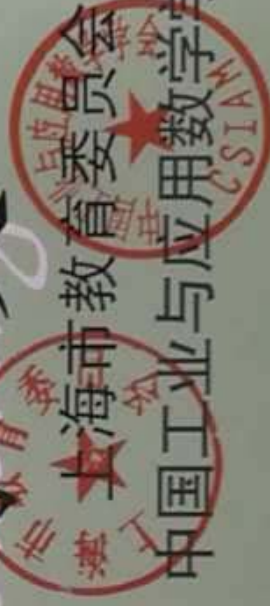 上海市教育委员会
中国工业与应用数学学
CSIAM